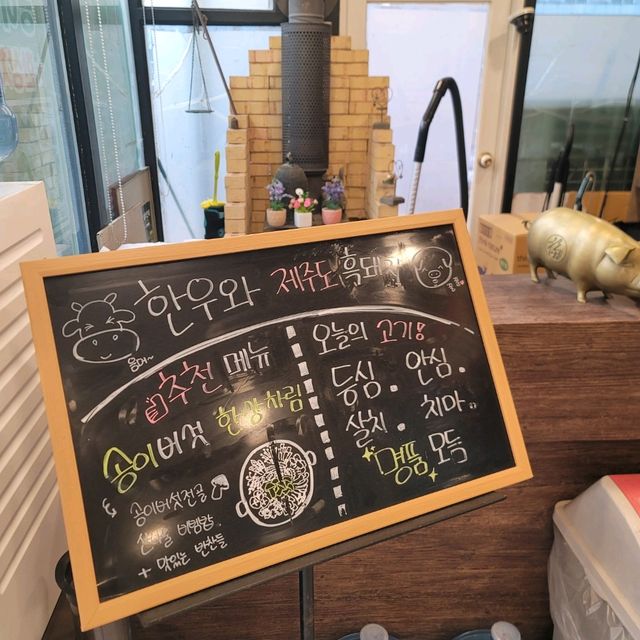 한우와 제주도 흑돼지
음머~
추천 메뉴
송이버섯 한상차림
& 송이버섯전골
산채나물 비빔밥.
+ 맛있는 반찬들
오늘의 고기!
등심. 안심.
살치. 치마.
명품 모듬